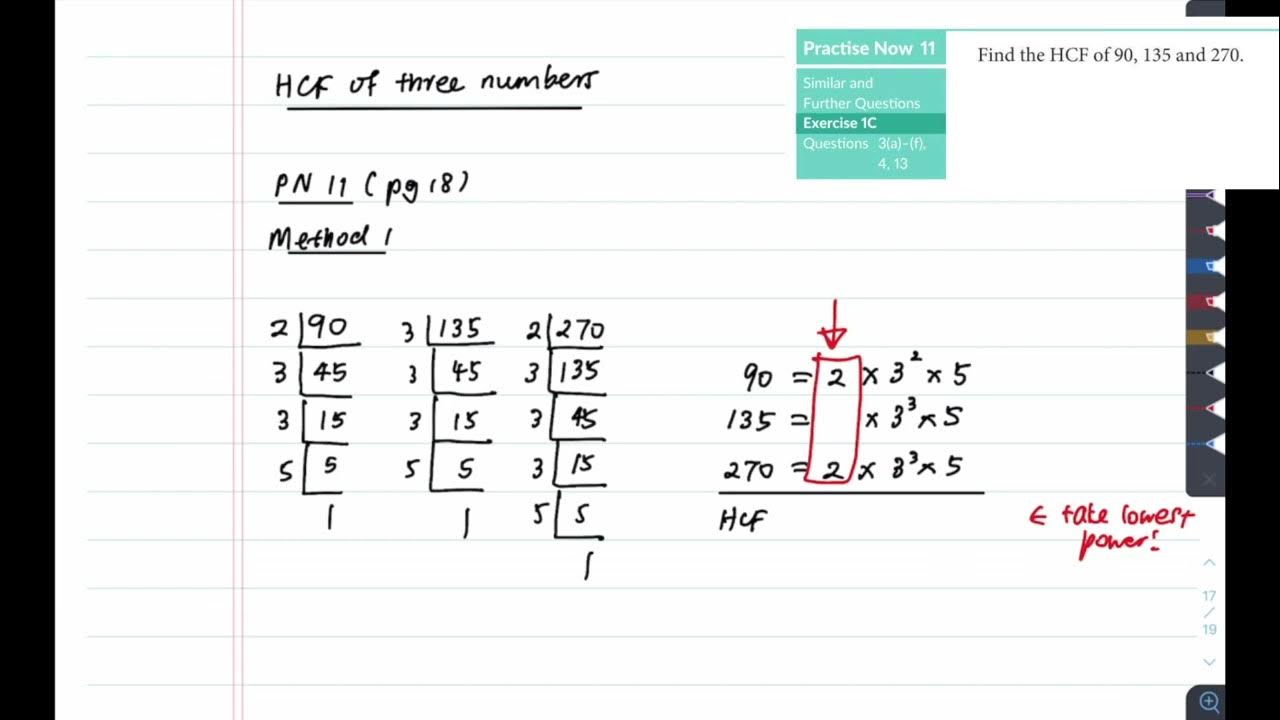 Practise Now 11
Similar and
Further Questions
Exercise 1C
Questions 3(a)–(f),
4, 13
Find the HCF of 90, 135 and 270.
HCF of three numbers
PN 11 (pg 18)
Method 1
2 90 3 135 2 270
3 45 3 45 3 135
3 15 3 15 3 45
5 5 5 5 3 15
1 1 5 5
1
90 = 2 × 3² × 5
135 = × 3³ × 5
270 = 2 × 3³ × 5
HCF
← take lowest
power!
17
/
19